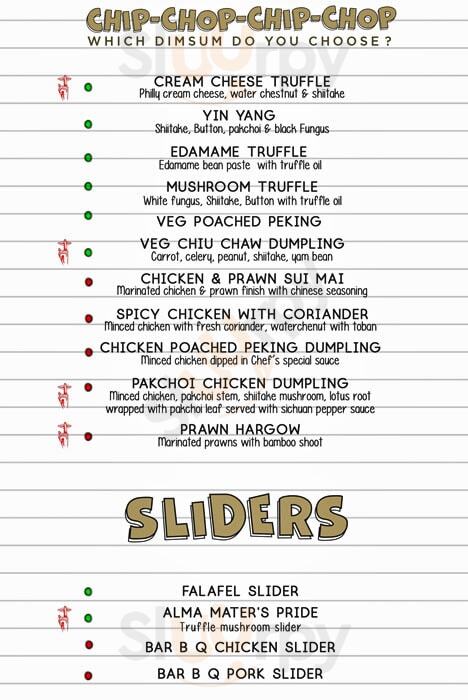 CHIP-CHOP-CHIP-CHOP
WHICH DIMSUM DO YOU CHOOSE?
CREAM CHEESE TRUFFLE
Philly cream cheese, water chestnut & shiitake
YIN YANG
Shiitake, Button, pakchoi & black Fungus
EDAMAME TRUFFLE
Edamame bean paste with truffle oil
MUSHROOM TRUFFLE
White fungus, Shiitake, Button with truffle oil
VEG POACHED PEKING
VEG CHIU CHAW DUMPLING
Carrot, celery, peanut, shiitake, yam bean
CHICKEN & PRAWN SUI MAI
Marinated chicken & prawn finish with chinese seasoning
SPICY CHICKEN WITH CORIANDER
Minced chicken with fresh coriander, waterchenut with toban
CHICKEN POACHED PEKING DUMPLING
Minced chicken dipped in Chef's special sauce
PAKCHOI CHICKEN DUMPLING
Minced chicken, pakchoi stem, shiitake mushroom, lotus root
wrapped with pakchoi leaf served with sichuan pepper sauce
PRAWN HARGOW
Marinated prawns with bamboo shoot
SLIDERS
FALAFEL SLIDER
ALMA MATER'S PRIDE
Truffle mushroom slider
BAR B Q CHICKEN SLIDER
BAR B Q PORK SLIDER